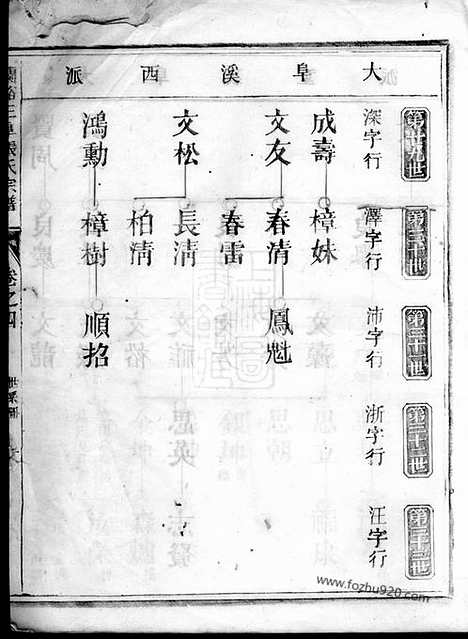 大阜溪西派
第廿九世 第三十世 第三十一世 第三十二世 第三十三世
深字行 澤字行 沛字行 浙字行 汪字行
成壽 樟妹
文友 春清 鳳魁
春雷
文松 長清
柏清
鴻勳 樟樹 順招
氏宗譜 卷之四
www.fozhu920.com